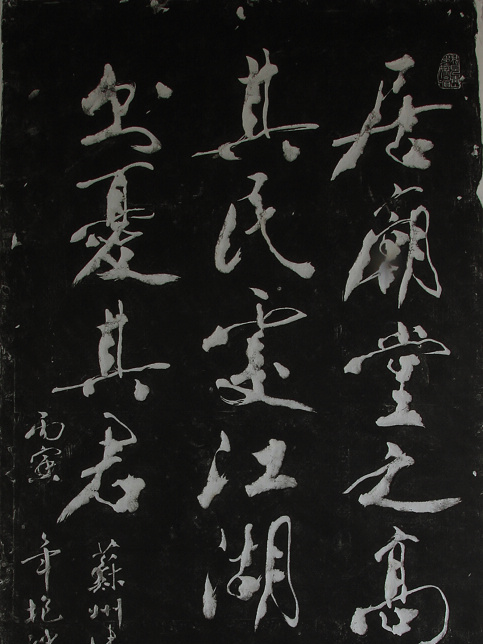 居廟堂之高
其民處江湖
則憂其君
蘇州
丙寅年